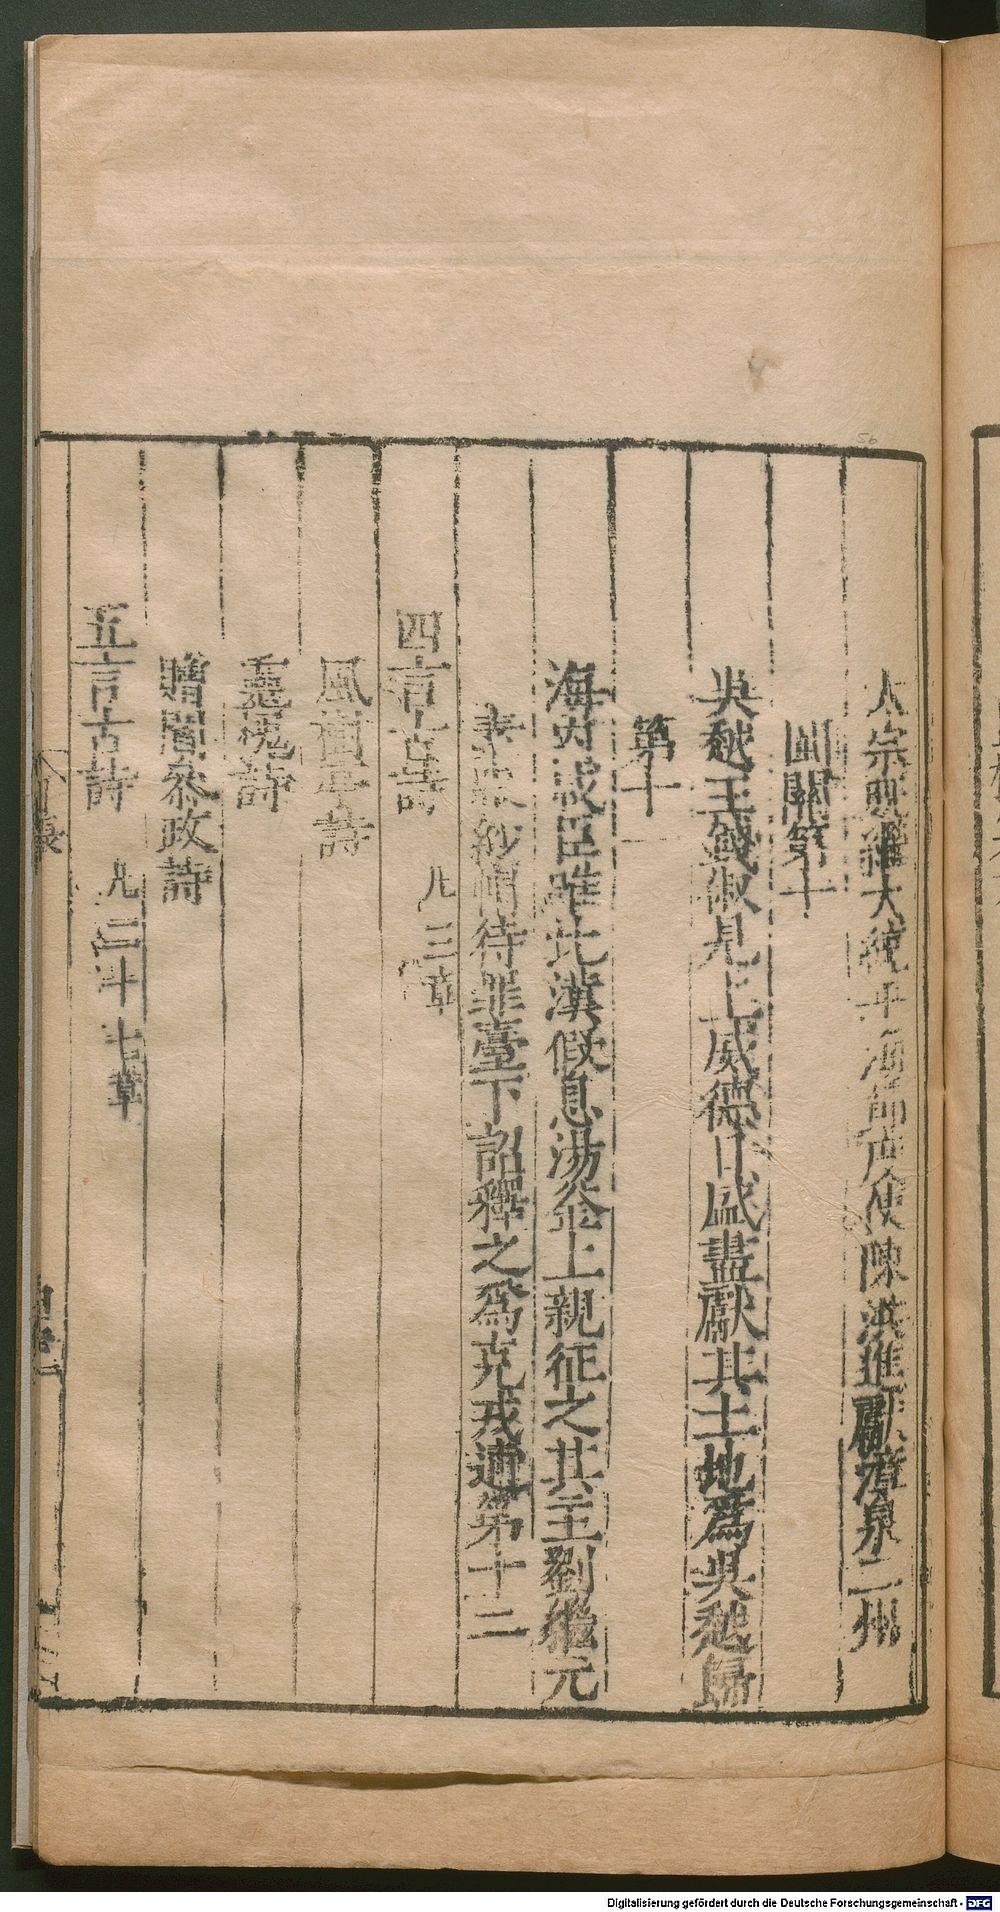 太宗熙繼大統平海節度使陳洪進獻漳泉二州
闢第十
吳越王錢俶見上威德日盛盡獻其土地爲吳越歸
第十一
海內咸臣唯北漢假息湯釜上親征之其主劉繼元
素衫紗帽待罪臺下詔釋之爲克戎適第十二
四言古詩 凡三章
風樹亭詩
詩
贈閻參政詩
五言古詩 凡二十七章
Digitalisierung gefördert durch die Deutsche Forschungsgemeinschaft - DFG